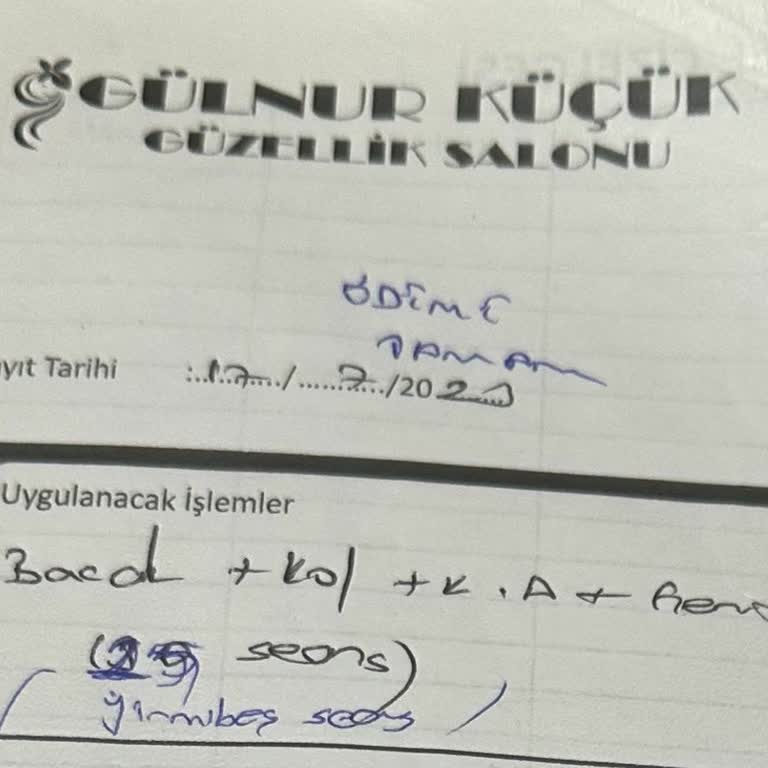 GÜLNUR KÜÇÜK
GÜZELLİK SALONU
ÖDEME
TAMAM
yıt Tarihi :..17..../......7.../202
Uygulanacak İşlemler
Bacak + Kol + K.A + Gen
(25 seans)
(yirmibeş seans)